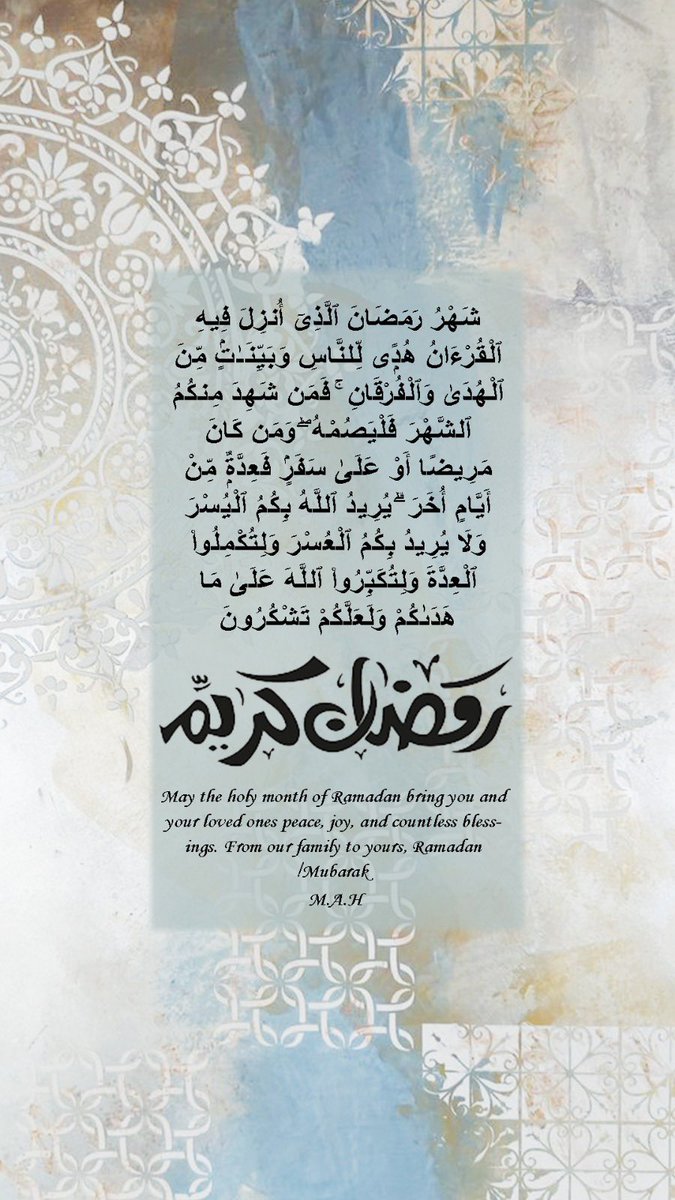 شَهْرُ رَمَضَانَ ٱلَّذِىٓ أُنزِلَ فِيهِ
ٱلْقُرْءَانُ هُدًى لِّلنَّاسِ وَبَيِّنَـٰتٍ مِّنَ
ٱلْهُدَىٰ وَٱلْفُرْقَانِ ۚ فَمَن شَهِدَ مِنكُمُ
ٱلشَّهْرَ فَلْيَصُمْهُ ۖ وَمَن كَانَ
مَرِيضًا أَوْ عَلَىٰ سَفَرٍ فَعِدَّةٌ مِّنْ
أَيَّامٍ أُخَرَ ۗ يُرِيدُ ٱللَّهُ بِكُمُ ٱلْيُسْرَ
وَلَا يُرِيدُ بِكُمُ ٱلْعُسْرَ وَلِتُكْمِلُوا۟
ٱلْعِدَّةَ وَلِتُكَبِّرُوا۟ ٱللَّهَ عَلَىٰ مَا
هَدَىٰكُمْ وَلَعَلَّكُمْ تَشْكُرُونَ
رمضان كريم
May the holy month of Ramadan bring you and
your loved ones peace, joy, and countless bless-
ings. From our family to yours, Ramadan
!Mubarak
M.A.H